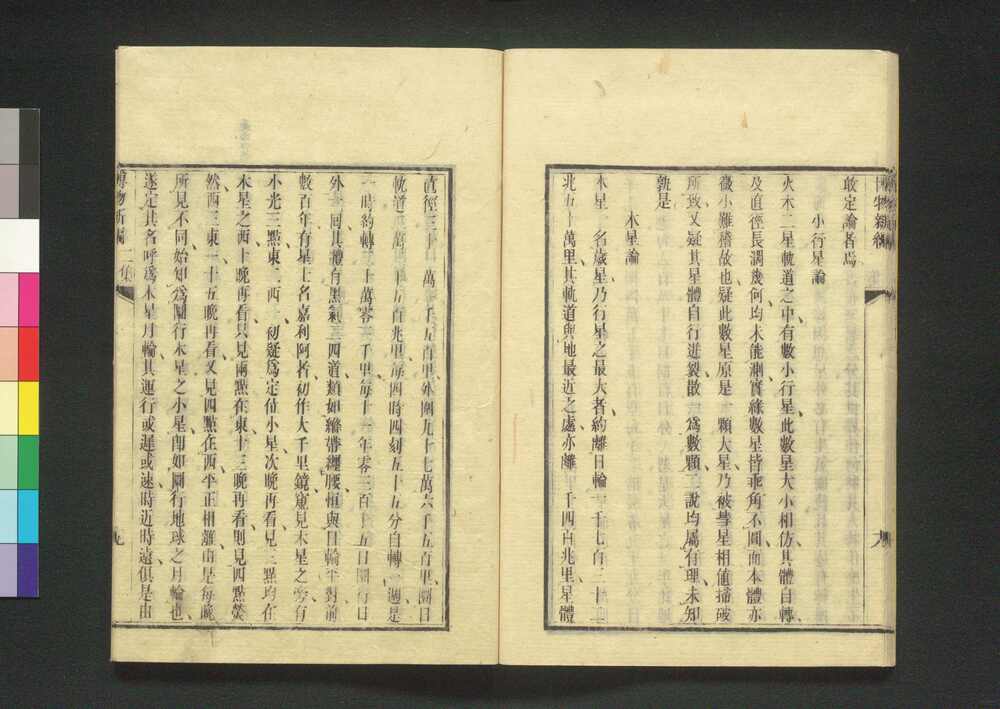 敢定論者焉
小行星論
火木二星軌道之中有數小行星此數星大小相仿其體自轉
及直徑長濶幾何均未能測實緣數星皆乖角不圓而本體亦
微小難稽故也疑此數星原是一顆大星乃被彗星相値掃破
所致又疑其星體自行迸裂散而爲數顆二說均屬有理未知
孰是
木星論
木星一名歲星乃行星之最大者約離日輪一千七百二十兆
北五十萬里其軌道與地最近之處亦離一千四百兆里星體
直徑三十一萬一千五百里外圍九十七萬六千五百里圜日
軌道一萬 百兆里每四時四刻五十五分自轉一週是
一時約轉二十萬零二千里每十一年零三百十五日圜行日
外一周其體有黑氣三四道類如絲帶纏腰恒與日輪平對前
數百年有星士名嘉利阿者初作大千里鏡窺見木星之旁有
小光三點東二西一初疑爲定位小星次晚再看見三點均在
木星之西十晚再看只見兩點在東十三晚再看則見四點熒
然西三東一十五晚再看又見四點在西平正相離由是每晚
所見不同始知爲圜行木星之小星卽如圜行地球之月輪也
遂定其名呼爲木星月輪其運行或遲或速時近時遠俱是由
博物新編
二集
九